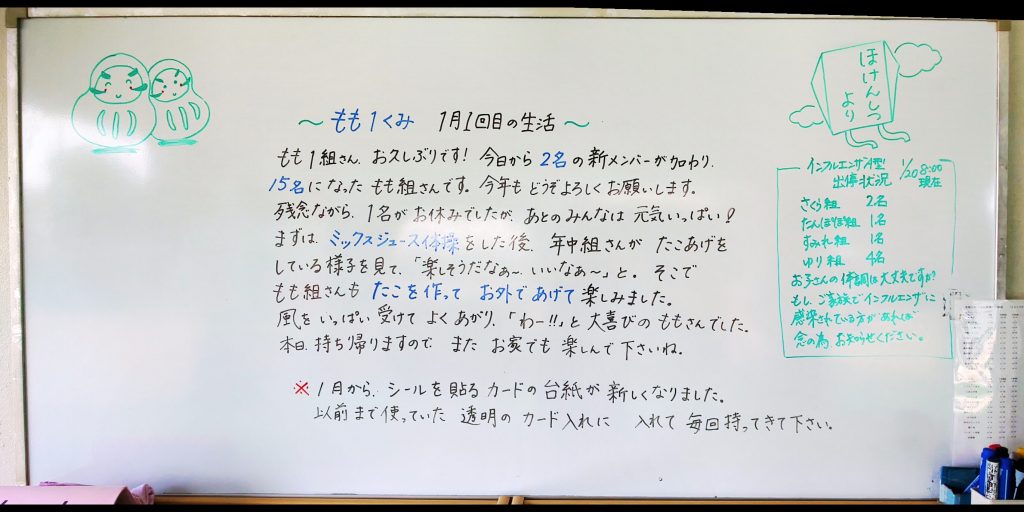 ～ もも1くみ 1月1回目の生活 ～
もも1組さん、お久しぶりです! 今日から 2名の新メンバーが加わり、
15名になった もも組さんです。今年も どうぞよろしくお願いします。
残念ながら、1名がお休みでしたが、あとのみんなは 元気いっぱい!
まずは、ミックスジュース体操をした後、年中組さんが たこあげを
している様子を見て、「楽しそうだなぁ～、いいなぁ～」と。そこで
もも組さんも たこを作って お外であげて 楽しみました。
風をいっぱい 受けて よくあがり、「わー!!」と 大喜びの ももさんでした。
本日、持ち帰りますので また お家でも 楽しんで下さいね。
※ 1月から、シールを貼る カードの台紙が 新しくなりました。
以前まで使っていた 透明の カード入れに 入れて 毎回持ってきて下さい。
ほけんしつ
より
インフルエンザA型
出停状況
1/20 8:00
現在
さくら組 2名
たんぽぽ組 1名
すみれ組 1名
ゆり組 4名
お子さんの体調は大丈夫ですか?
もし、ご家族でインフルエンザに
感染されている方があれば
念の為 お知らせください。